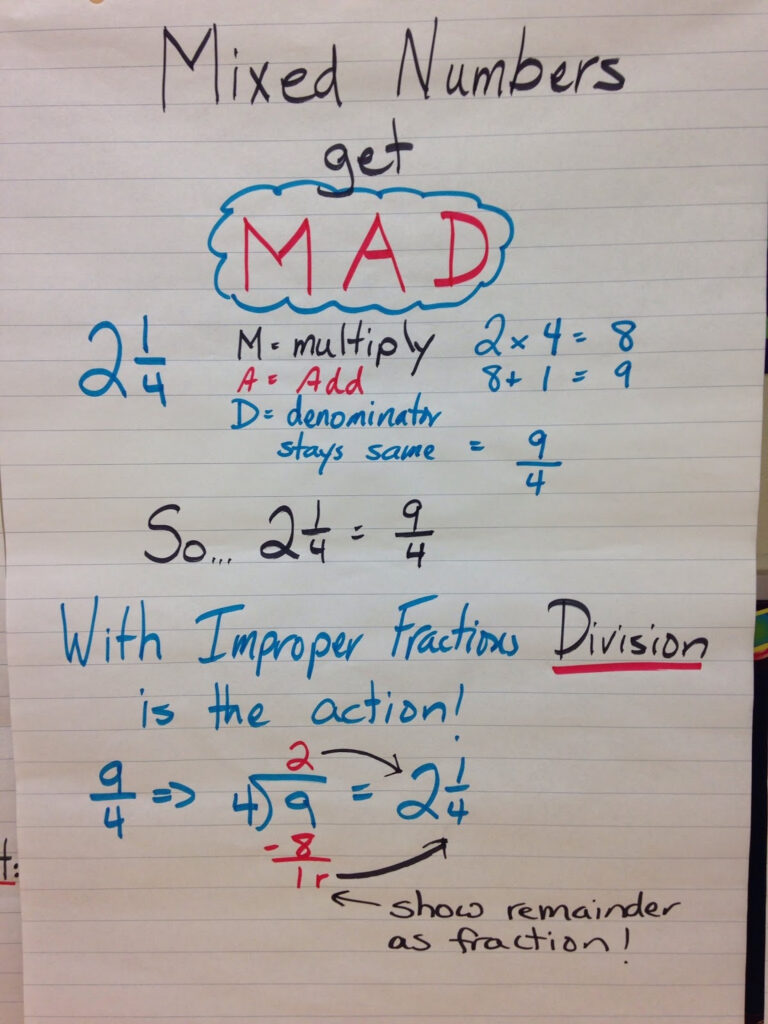 Mixed Numbers
get
MAD
2 1/4 M = multiply 2 x 4 = 8
A = Add 8 + 1 = 9
D = denominator
stays same = 9/4
So... 2 1/4 = 9/4
With Improper Fractions Division
is the action!
2
9/4 => 4)9 = 2 1/4
- 8
1 r
t:
show remainder
as fraction!